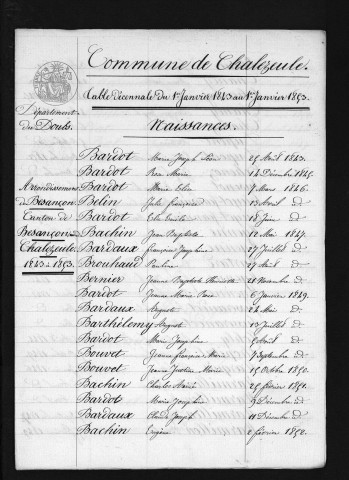 Commune de Chalezeule.
Table décennale du 1er Janvier 1843 au 1er Janvier 1853.
Département
du Doubs.
Naissances.
Arrondissement
de Besançon
Canton de
Besançon
Chalezeule
1843 à 1853.
Bardot Marie Joseph 25 Avril 1843.
Bardot Rose Marie 14 Décembre 1845.
Bardot Marie Elise 7 Mars 1846.
Belin Jules François 13 Avril d°
Bardot 18 Juin d°
Bachin Jean Baptiste 12 Mai 1847.
Bardaux Françoise Joséphine 27 Juillet d°
Brouhaud Pauline 27 Août d°
Bernier Jeanne Baptiste 21 Novembre d°
Bardot Jeanne Marie 6 Janvier 1849.
Bardaux August 24 Mai d°
Barthélemy August 13 Juillet d°
Bardot Marie Joséphine 5 Août d°
Bouvet Jeanne Françoise Marie 7 Septembre d°
Bouvet Jeanne Justine Marie 15 Octobre 1850.
Bachin Charles 25 février 1851.
Bardot Marie Joséphine 9 Décembre d°
Bardaux Claude Joseph 11 Décembre d°
Bachin Eugène 2 février 1852.